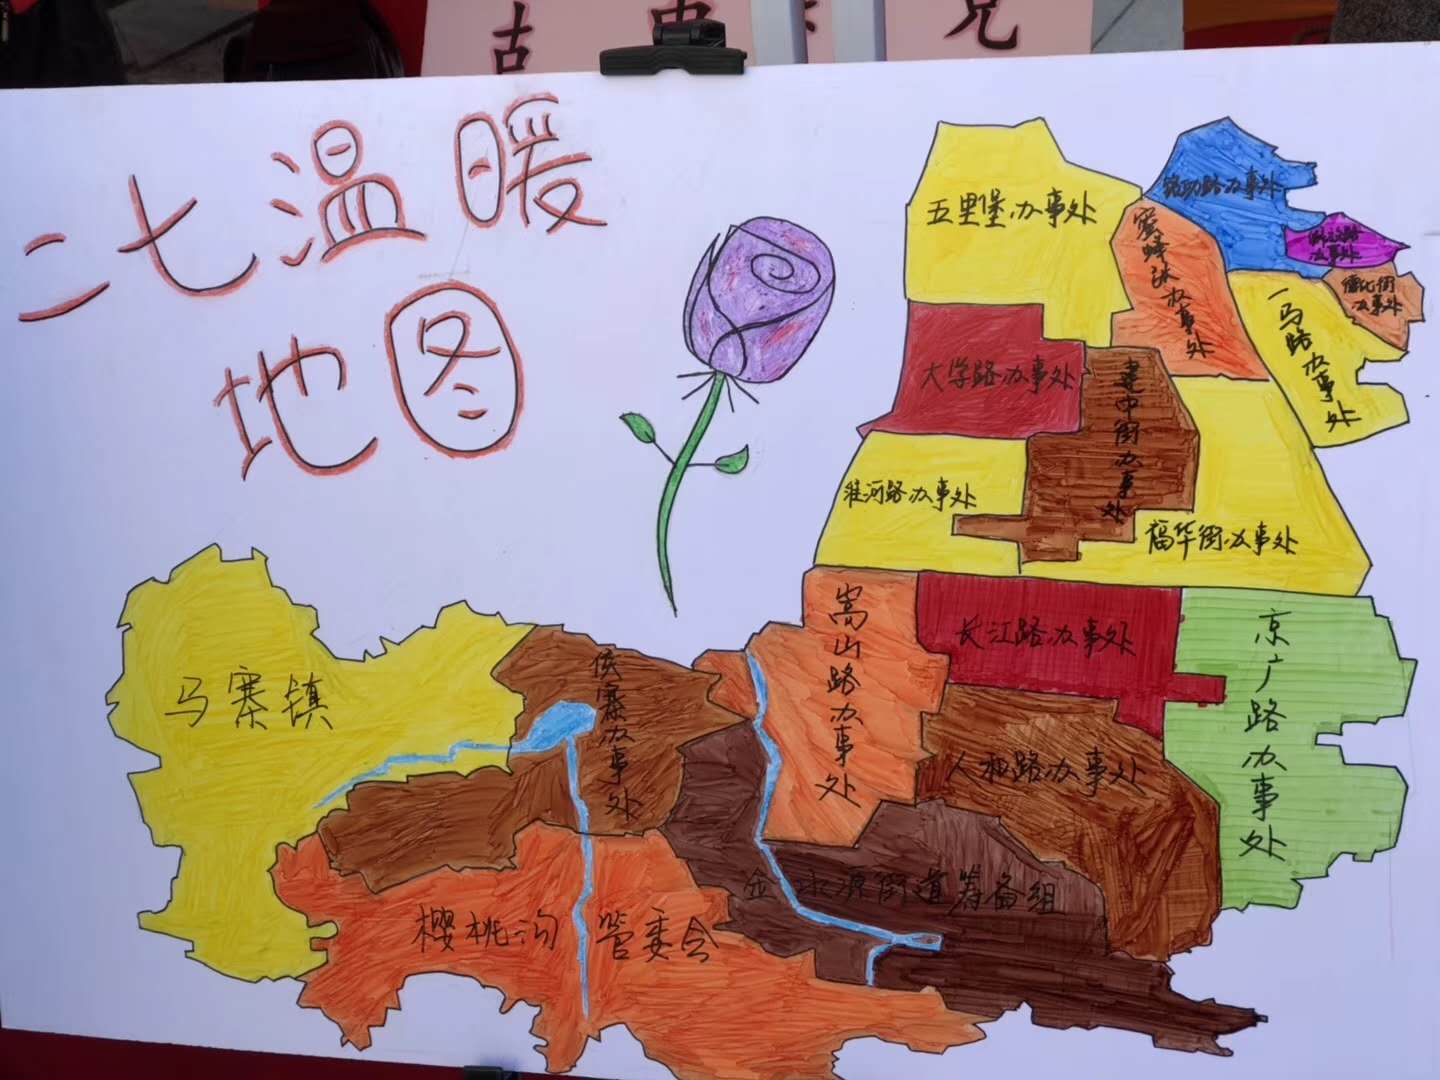 古
兄
二七温暖
地图
五里堡办事处
铭功路办事处
解放路
办事处
蜜蜂张办事处
德化街
办事处
一马路办事处
大学路办事处
建中街办事处
淮河路办事处
福华街办事处
嵩山路办事处
长江路办事处
京广路办事处
马寨镇
侯寨办事处
人和路办事处
金水源街道筹备组
樱桃沟管委会